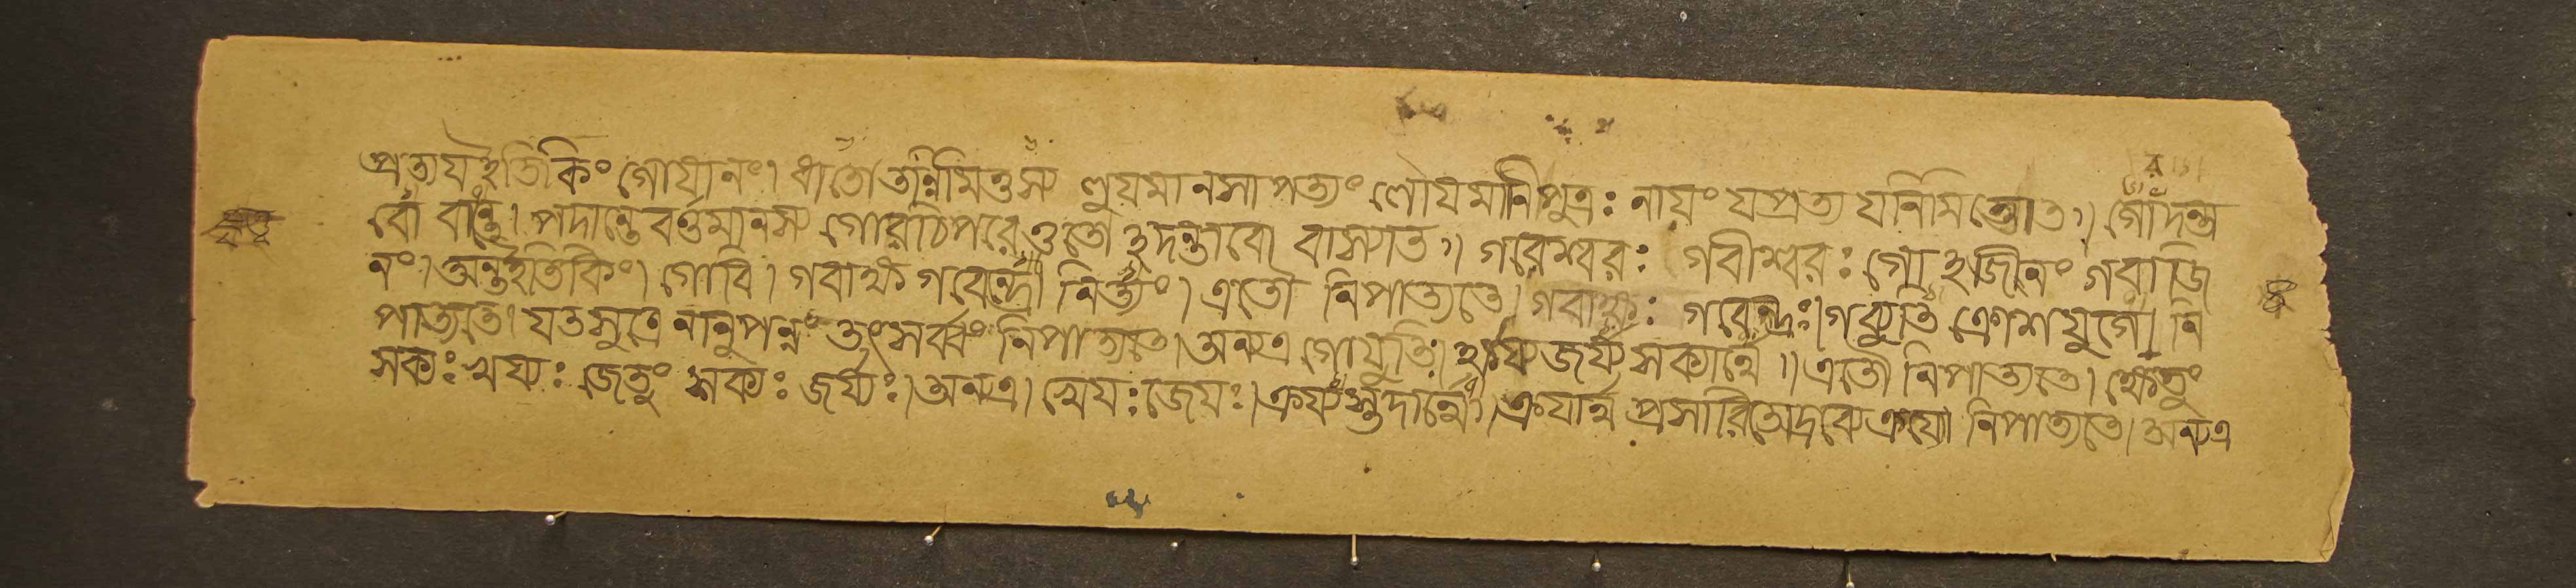 প্রত্যয ইতি কিং গোযানং। ধাতোস্তন্নিমিত্তস্য ণুয়মানসাপত্যং লৌযমানিপুত্রঃ নায়ং যপ্রত্যযনিমিত্তোত্।। গোঁদন্ত
বো বান্ত্ৰে। পদান্তে বর্ত্তমানস্য গোরচি পরে ওতো ইদন্তাবো বাস্যাত্।। গবেশ্বরঃ গবীশ্বরঃ গো ইজীনং গবাজি
নং। অন্ত ইতি কিং। গোবি। গবাক্ষ গবেন্দ্রৌ নিত্যং। এতৌ নিপাত্যতে। গবাক্ষঃ গবেন্দ্রঃ। গব্যুতি ক্রোশযুগে। নি
পাত্যতে। যত্তসুত্রে নানুপন্নং তৎসর্ব্বং নিপাত্যতে। অন্যত্র গোযুতি। ক্ষয্য জয্য সক্যার্থে।। এতৌ নিপাত্যতে। ক্ষেতুং
সক্যঃ ক্ষয্যঃ জেতুং শক্যঃ জয্যঃ। অন্যত্র। ক্ষেযঃ জেয়ঃ। ক্রয্যস্তদার্থে। ক্রযার্থ প্রসারিতেদ্রব্যে ক্রয্যো নিপাত্যতে। অন্যত্র